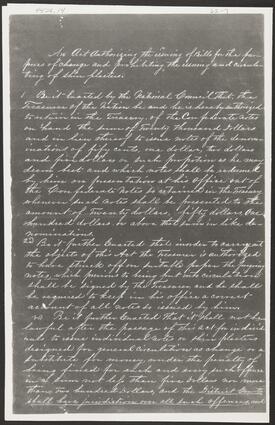 An Act Authorizing the issuing of Bills for the pur-
poses of Change and prohibiting the issuing and circula-
ting of shin plasters.
1. Be it Enacted by the National Council That, the
Treasurer of the Nation be and he is hereby authorized
to retain in the Treasury, of the Confederate notes
on hand the sum of Twenty Thousand dollars
and in lieu thereof to issue notes of the denom-
inations of fifty cents, one dollar, two dollars
and five dollars in such proportion as he may
deem best and which notes shall be redeemed
by him on presentation at his Office out of
the Confederate Notes so retained in the Treasury
whenever such notes shall be presented to the
amount of Twenty dollars, fifty dollars One
hundred dollars or above that sum in like de-
nominations.
2nd Be it further Enacted That in order to carry out
the objects of this act the Treasurer is authorized
to have struck off on suitable paper the forgoing
notes, which previous to being put into circulation
shall be signed by the Treasurer, and he shall
be required to keep in his office a correct
account of all notes so issued by him
3d Be it further Enacted That it shall not be
lawful after the passage of this act for individ-
uals to issue individual notes or shin plasters
designed for general Circulation as change or
substitute for money, under the penalty of
being fined for each and every such offence
in a sum not less than five dollars nor more
than one hundred dollars, and the District Courts
shall have jurisdiction over all such offences,